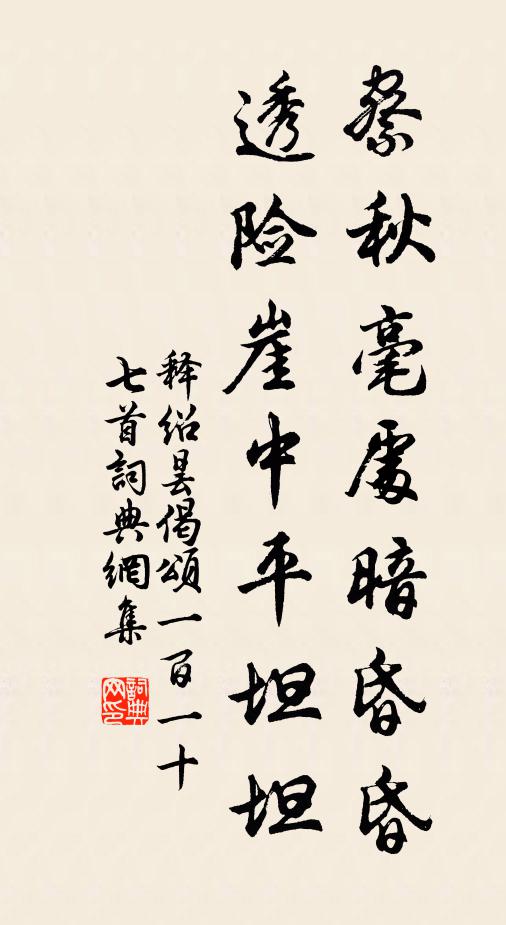 察秋毫處暗昏昏
透险崖中平坦坦
释绍昙偈頌一百一十
七首詞典網集
詞典网印